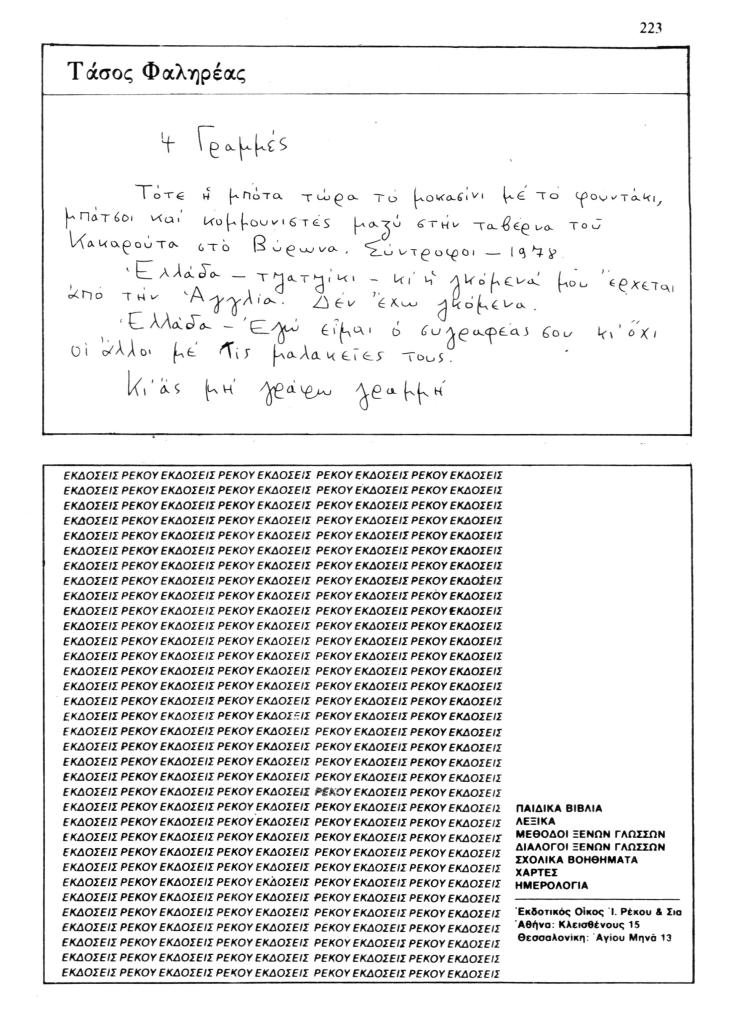 223
Τάσος Φαληρέας
4 Γραμμές
Τότε ἡ μπότα τώρα τό μοκασίνι μέ τό φουντάκι,
μπάτσοι καί κομμουνιστές μαζύ στήν ταβέρνα τοῦ
Κακαρούτα στό Βύρωνα. Σύντροφοι – 1978
Ἑλλάδα – τζατζίκι – κι ἡ γκόμενά μου ἔρχεται
ἀπό τήν Ἀγγλία. Δέν ἔχω γκόμενα.
Ἑλλάδα – Ἐγώ εἶμαι ὁ συγραφέας σου κι' ὄχι
οἱ ἄλλοι μέ τίς μαλακεῖες τους.
Κι' ἄς μή γράφω γραμμή
ΕΚΔΟΣΕΙΣ ΡΕΚΟΥ ΕΚΔΟΣΕΙΣ ΡΕΚΟΥ ΕΚΔΟΣΕΙΣ ΡΕΚΟΥ ΕΚΔΟΣΕΙΣ ΡΕΚΟΥ ΕΚΔΟΣΕΙΣ
ΕΚΔΟΣΕΙΣ ΡΕΚΟΥ ΕΚΔΟΣΕΙΣ ΡΕΚΟΥ ΕΚΔΟΣΕΙΣ ΡΕΚΟΥ ΕΚΔΟΣΕΙΣ ΡΕΚΟΥ ΕΚΔΟΣΕΙΣ
ΕΚΔΟΣΕΙΣ ΡΕΚΟΥ ΕΚΔΟΣΕΙΣ ΡΕΚΟΥ ΕΚΔΟΣΕΙΣ ΡΕΚΟΥ ΕΚΔΟΣΕΙΣ ΡΕΚΟΥ ΕΚΔΟΣΕΙΣ
ΕΚΔΟΣΕΙΣ ΡΕΚΟΥ ΕΚΔΟΣΕΙΣ ΡΕΚΟΥ ΕΚΔΟΣΕΙΣ ΡΕΚΟΥ ΕΚΔΟΣΕΙΣ ΡΕΚΟΥ ΕΚΔΟΣΕΙΣ
ΕΚΔΟΣΕΙΣ ΡΕΚΟΥ ΕΚΔΟΣΕΙΣ ΡΕΚΟΥ ΕΚΔΟΣΕΙΣ ΡΕΚΟΥ ΕΚΔΟΣΕΙΣ ΡΕΚΟΥ ΕΚΔΟΣΕΙΣ
ΕΚΔΟΣΕΙΣ ΡΕΚΟΥ ΕΚΔΟΣΕΙΣ ΡΕΚΟΥ ΕΚΔΟΣΕΙΣ ΡΕΚΟΥ ΕΚΔΟΣΕΙΣ ΡΕΚΟΥ ΕΚΔΟΣΕΙΣ
ΕΚΔΟΣΕΙΣ ΡΕΚΟΥ ΕΚΔΟΣΕΙΣ ΡΕΚΟΥ ΕΚΔΟΣΕΙΣ ΡΕΚΟΥ ΕΚΔΟΣΕΙΣ ΡΕΚΟΥ ΕΚΔΟΣΕΙΣ
ΕΚΔΟΣΕΙΣ ΡΕΚΟΥ ΕΚΔΟΣΕΙΣ ΡΕΚΟΥ ΕΚΔΟΣΕΙΣ ΡΕΚΟΥ ΕΚΔΟΣΕΙΣ ΡΕΚΟΥ ΕΚΔΟΣΕΙΣ
ΕΚΔΟΣΕΙΣ ΡΕΚΟΥ ΕΚΔΟΣΕΙΣ ΡΕΚΟΥ ΕΚΔΟΣΕΙΣ ΡΕΚΟΥ ΕΚΔΟΣΕΙΣ ΡΕΚΟΥ ΕΚΔΟΣΕΙΣ
ΕΚΔΟΣΕΙΣ ΡΕΚΟΥ ΕΚΔΟΣΕΙΣ ΡΕΚΟΥ ΕΚΔΟΣΕΙΣ ΡΕΚΟΥ ΕΚΔΟΣΕΙΣ ΡΕΚΟΥ ΕΚΔΟΣΕΙΣ
ΕΚΔΟΣΕΙΣ ΡΕΚΟΥ ΕΚΔΟΣΕΙΣ ΡΕΚΟΥ ΕΚΔΟΣΕΙΣ ΡΕΚΟΥ ΕΚΔΟΣΕΙΣ ΡΕΚΟΥ ΕΚΔΟΣΕΙΣ
ΕΚΔΟΣΕΙΣ ΡΕΚΟΥ ΕΚΔΟΣΕΙΣ ΡΕΚΟΥ ΕΚΔΟΣΕΙΣ ΡΕΚΟΥ ΕΚΔΟΣΕΙΣ ΡΕΚΟΥ ΕΚΔΟΣΕΙΣ
ΕΚΔΟΣΕΙΣ ΡΕΚΟΥ ΕΚΔΟΣΕΙΣ ΡΕΚΟΥ ΕΚΔΟΣΕΙΣ ΡΕΚΟΥ ΕΚΔΟΣΕΙΣ ΡΕΚΟΥ ΕΚΔΟΣΕΙΣ
ΕΚΔΟΣΕΙΣ ΡΕΚΟΥ ΕΚΔΟΣΕΙΣ ΡΕΚΟΥ ΕΚΔΟΣΕΙΣ ΡΕΚΟΥ ΕΚΔΟΣΕΙΣ ΡΕΚΟΥ ΕΚΔΟΣΕΙΣ
ΕΚΔΟΣΕΙΣ ΡΕΚΟΥ ΕΚΔΟΣΕΙΣ ΡΕΚΟΥ ΕΚΔΟΣΕΙΣ ΡΕΚΟΥ ΕΚΔΟΣΕΙΣ ΡΕΚΟΥ ΕΚΔΟΣΕΙΣ
ΕΚΔΟΣΕΙΣ ΡΕΚΟΥ ΕΚΔΟΣΕΙΣ ΡΕΚΟΥ ΕΚΔΟΣΕΙΣ ΡΕΚΟΥ ΕΚΔΟΣΕΙΣ ΡΕΚΟΥ ΕΚΔΟΣΕΙΣ
ΕΚΔΟΣΕΙΣ ΡΕΚΟΥ ΕΚΔΟΣΕΙΣ ΡΕΚΟΥ ΕΚΔΟΣΕΙΣ ΡΕΚΟΥ ΕΚΔΟΣΕΙΣ ΡΕΚΟΥ ΕΚΔΟΣΕΙΣ
ΕΚΔΟΣΕΙΣ ΡΕΚΟΥ ΕΚΔΟΣΕΙΣ ΡΕΚΟΥ ΕΚΔΟΣΕΙΣ ΡΕΚΟΥ ΕΚΔΟΣΕΙΣ ΡΕΚΟΥ ΕΚΔΟΣΕΙΣ
ΕΚΔΟΣΕΙΣ ΡΕΚΟΥ ΕΚΔΟΣΕΙΣ ΡΕΚΟΥ ΕΚΔΟΣΕΙΣ ΡΕΚΟΥ ΕΚΔΟΣΕΙΣ ΡΕΚΟΥ ΕΚΔΟΣΕΙΣ
ΕΚΔΟΣΕΙΣ ΡΕΚΟΥ ΕΚΔΟΣΕΙΣ ΡΕΚΟΥ ΕΚΔΟΣΕΙΣ ΡΕΚΟΥ ΕΚΔΟΣΕΙΣ ΡΕΚΟΥ ΕΚΔΟΣΕΙΣ
ΕΚΔΟΣΕΙΣ ΡΕΚΟΥ ΕΚΔΟΣΕΙΣ ΡΕΚΟΥ ΕΚΔΟΣΕΙΣ ΡΕΚΟΥ ΕΚΔΟΣΕΙΣ ΡΕΚΟΥ ΕΚΔΟΣΕΙΣ
ΕΚΔΟΣΕΙΣ ΡΕΚΟΥ ΕΚΔΟΣΕΙΣ ΡΕΚΟΥ ΕΚΔΟΣΕΙΣ ΡΕΚΟΥ ΕΚΔΟΣΕΙΣ ΡΕΚΟΥ ΕΚΔΟΣΕΙΣ
ΕΚΔΟΣΕΙΣ ΡΕΚΟΥ ΕΚΔΟΣΕΙΣ ΡΕΚΟΥ ΕΚΔΟΣΕΙΣ ΡΕΚΟΥ ΕΚΔΟΣΕΙΣ ΡΕΚΟΥ ΕΚΔΟΣΕΙΣ
ΕΚΔΟΣΕΙΣ ΡΕΚΟΥ ΕΚΔΟΣΕΙΣ ΡΕΚΟΥ ΕΚΔΟΣΕΙΣ ΡΕΚΟΥ ΕΚΔΟΣΕΙΣ ΡΕΚΟΥ ΕΚΔΟΣΕΙΣ
ΕΚΔΟΣΕΙΣ ΡΕΚΟΥ ΕΚΔΟΣΕΙΣ ΡΕΚΟΥ ΕΚΔΟΣΕΙΣ ΡΕΚΟΥ ΕΚΔΟΣΕΙΣ ΡΕΚΟΥ ΕΚΔΟΣΕΙΣ
ΕΚΔΟΣΕΙΣ ΡΕΚΟΥ ΕΚΔΟΣΕΙΣ ΡΕΚΟΥ ΕΚΔΟΣΕΙΣ ΡΕΚΟΥ ΕΚΔΟΣΕΙΣ ΡΕΚΟΥ ΕΚΔΟΣΕΙΣ
ΕΚΔΟΣΕΙΣ ΡΕΚΟΥ ΕΚΔΟΣΕΙΣ ΡΕΚΟΥ ΕΚΔΟΣΕΙΣ ΡΕΚΟΥ ΕΚΔΟΣΕΙΣ ΡΕΚΟΥ ΕΚΔΟΣΕΙΣ
ΕΚΔΟΣΕΙΣ ΡΕΚΟΥ ΕΚΔΟΣΕΙΣ ΡΕΚΟΥ ΕΚΔΟΣΕΙΣ ΡΕΚΟΥ ΕΚΔΟΣΕΙΣ ΡΕΚΟΥ ΕΚΔΟΣΕΙΣ
ΕΚΔΟΣΕΙΣ ΡΕΚΟΥ ΕΚΔΟΣΕΙΣ ΡΕΚΟΥ ΕΚΔΟΣΕΙΣ ΡΕΚΟΥ ΕΚΔΟΣΕΙΣ ΡΕΚΟΥ ΕΚΔΟΣΕΙΣ
ΕΚΔΟΣΕΙΣ ΡΕΚΟΥ ΕΚΔΟΣΕΙΣ ΡΕΚΟΥ ΕΚΔΟΣΕΙΣ ΡΕΚΟΥ ΕΚΔΟΣΕΙΣ ΡΕΚΟΥ ΕΚΔΟΣΕΙΣ
ΕΚΔΟΣΕΙΣ ΡΕΚΟΥ ΕΚΔΟΣΕΙΣ ΡΕΚΟΥ ΕΚΔΟΣΕΙΣ ΡΕΚΟΥ ΕΚΔΟΣΕΙΣ ΡΕΚΟΥ ΕΚΔΟΣΕΙΣ
ΕΚΔΟΣΕΙΣ ΡΕΚΟΥ ΕΚΔΟΣΕΙΣ ΡΕΚΟΥ ΕΚΔΟΣΕΙΣ ΡΕΚΟΥ ΕΚΔΟΣΕΙΣ ΡΕΚΟΥ ΕΚΔΟΣΕΙΣ
ΕΚΔΟΣΕΙΣ ΡΕΚΟΥ ΕΚΔΟΣΕΙΣ ΡΕΚΟΥ ΕΚΔΟΣΕΙΣ ΡΕΚΟΥ ΕΚΔΟΣΕΙΣ ΡΕΚΟΥ ΕΚΔΟΣΕΙΣ
ΕΚΔΟΣΕΙΣ ΡΕΚΟΥ ΕΚΔΟΣΕΙΣ ΡΕΚΟΥ ΕΚΔΟΣΕΙΣ ΡΕΚΟΥ ΕΚΔΟΣΕΙΣ ΡΕΚΟΥ ΕΚΔΟΣΕΙΣ
ΠΑΙΔΙΚΑ ΒΙΒΛΙΑ
ΛΕΞΙΚΑ
ΜΕΘΟΔΟΙ ΞΕΝΩΝ ΓΛΩΣΣΩΝ
ΔΙΑΛΟΓΟΙ ΞΕΝΩΝ ΓΛΩΣΣΩΝ
ΣΧΟΛΙΚΑ ΒΟΗΘΗΜΑΤΑ
ΧΑΡΤΕΣ
ΗΜΕΡΟΛΟΓΙΑ
Ἐκδοτικός Οἶκος Ἰ. Ρέκου & Σια
Ἀθήνα: Κλεισθένους 15
Θεσσαλονίκη: Ἁγίου Μηνᾶ 13